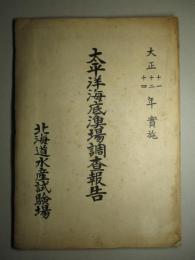 大正十一十二十四年實施
太平洋海底漁場調査報告
北海道水産試驗場